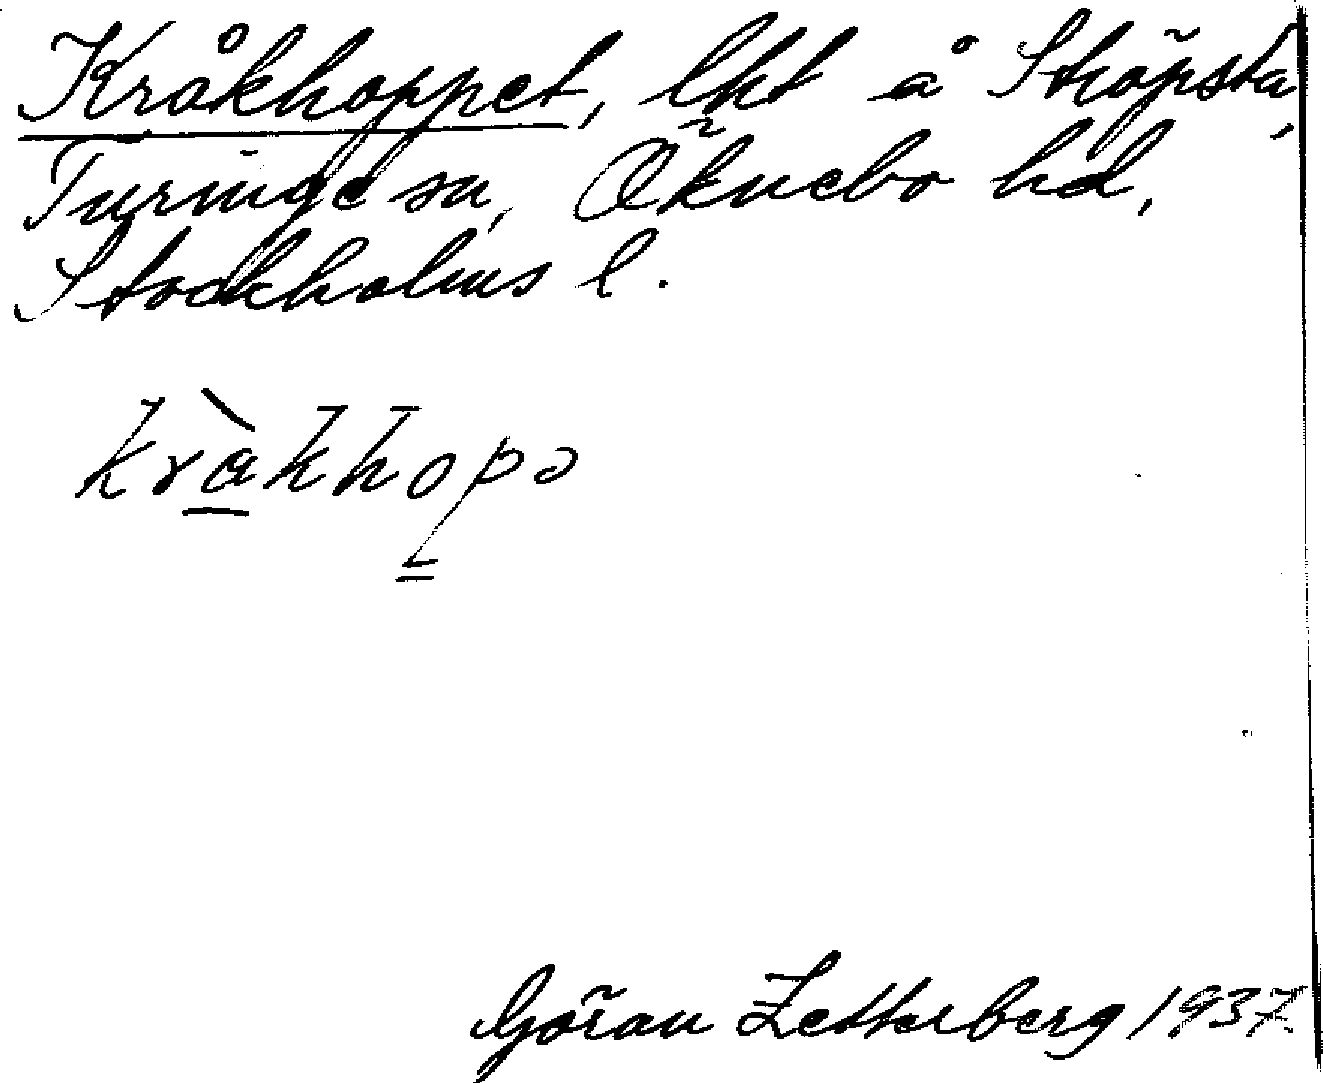 Kråkhoppet, lht å Ströpsta,
Turinge sn, Öknebo hd,
Stockholms l.
kràkhopə
Göran Zetterberg 1937.